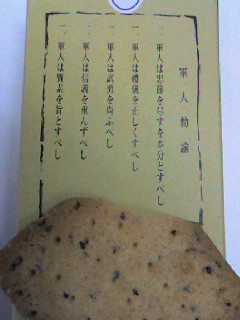 軍人勅諭
一、軍人は忠節を尽すを本分とすべし
一、軍人は禮儀を正しくすべし
一、軍人は武勇を尚ぶべし
一、軍人は信義を重んずべし
一、軍人は質素を旨とすべし